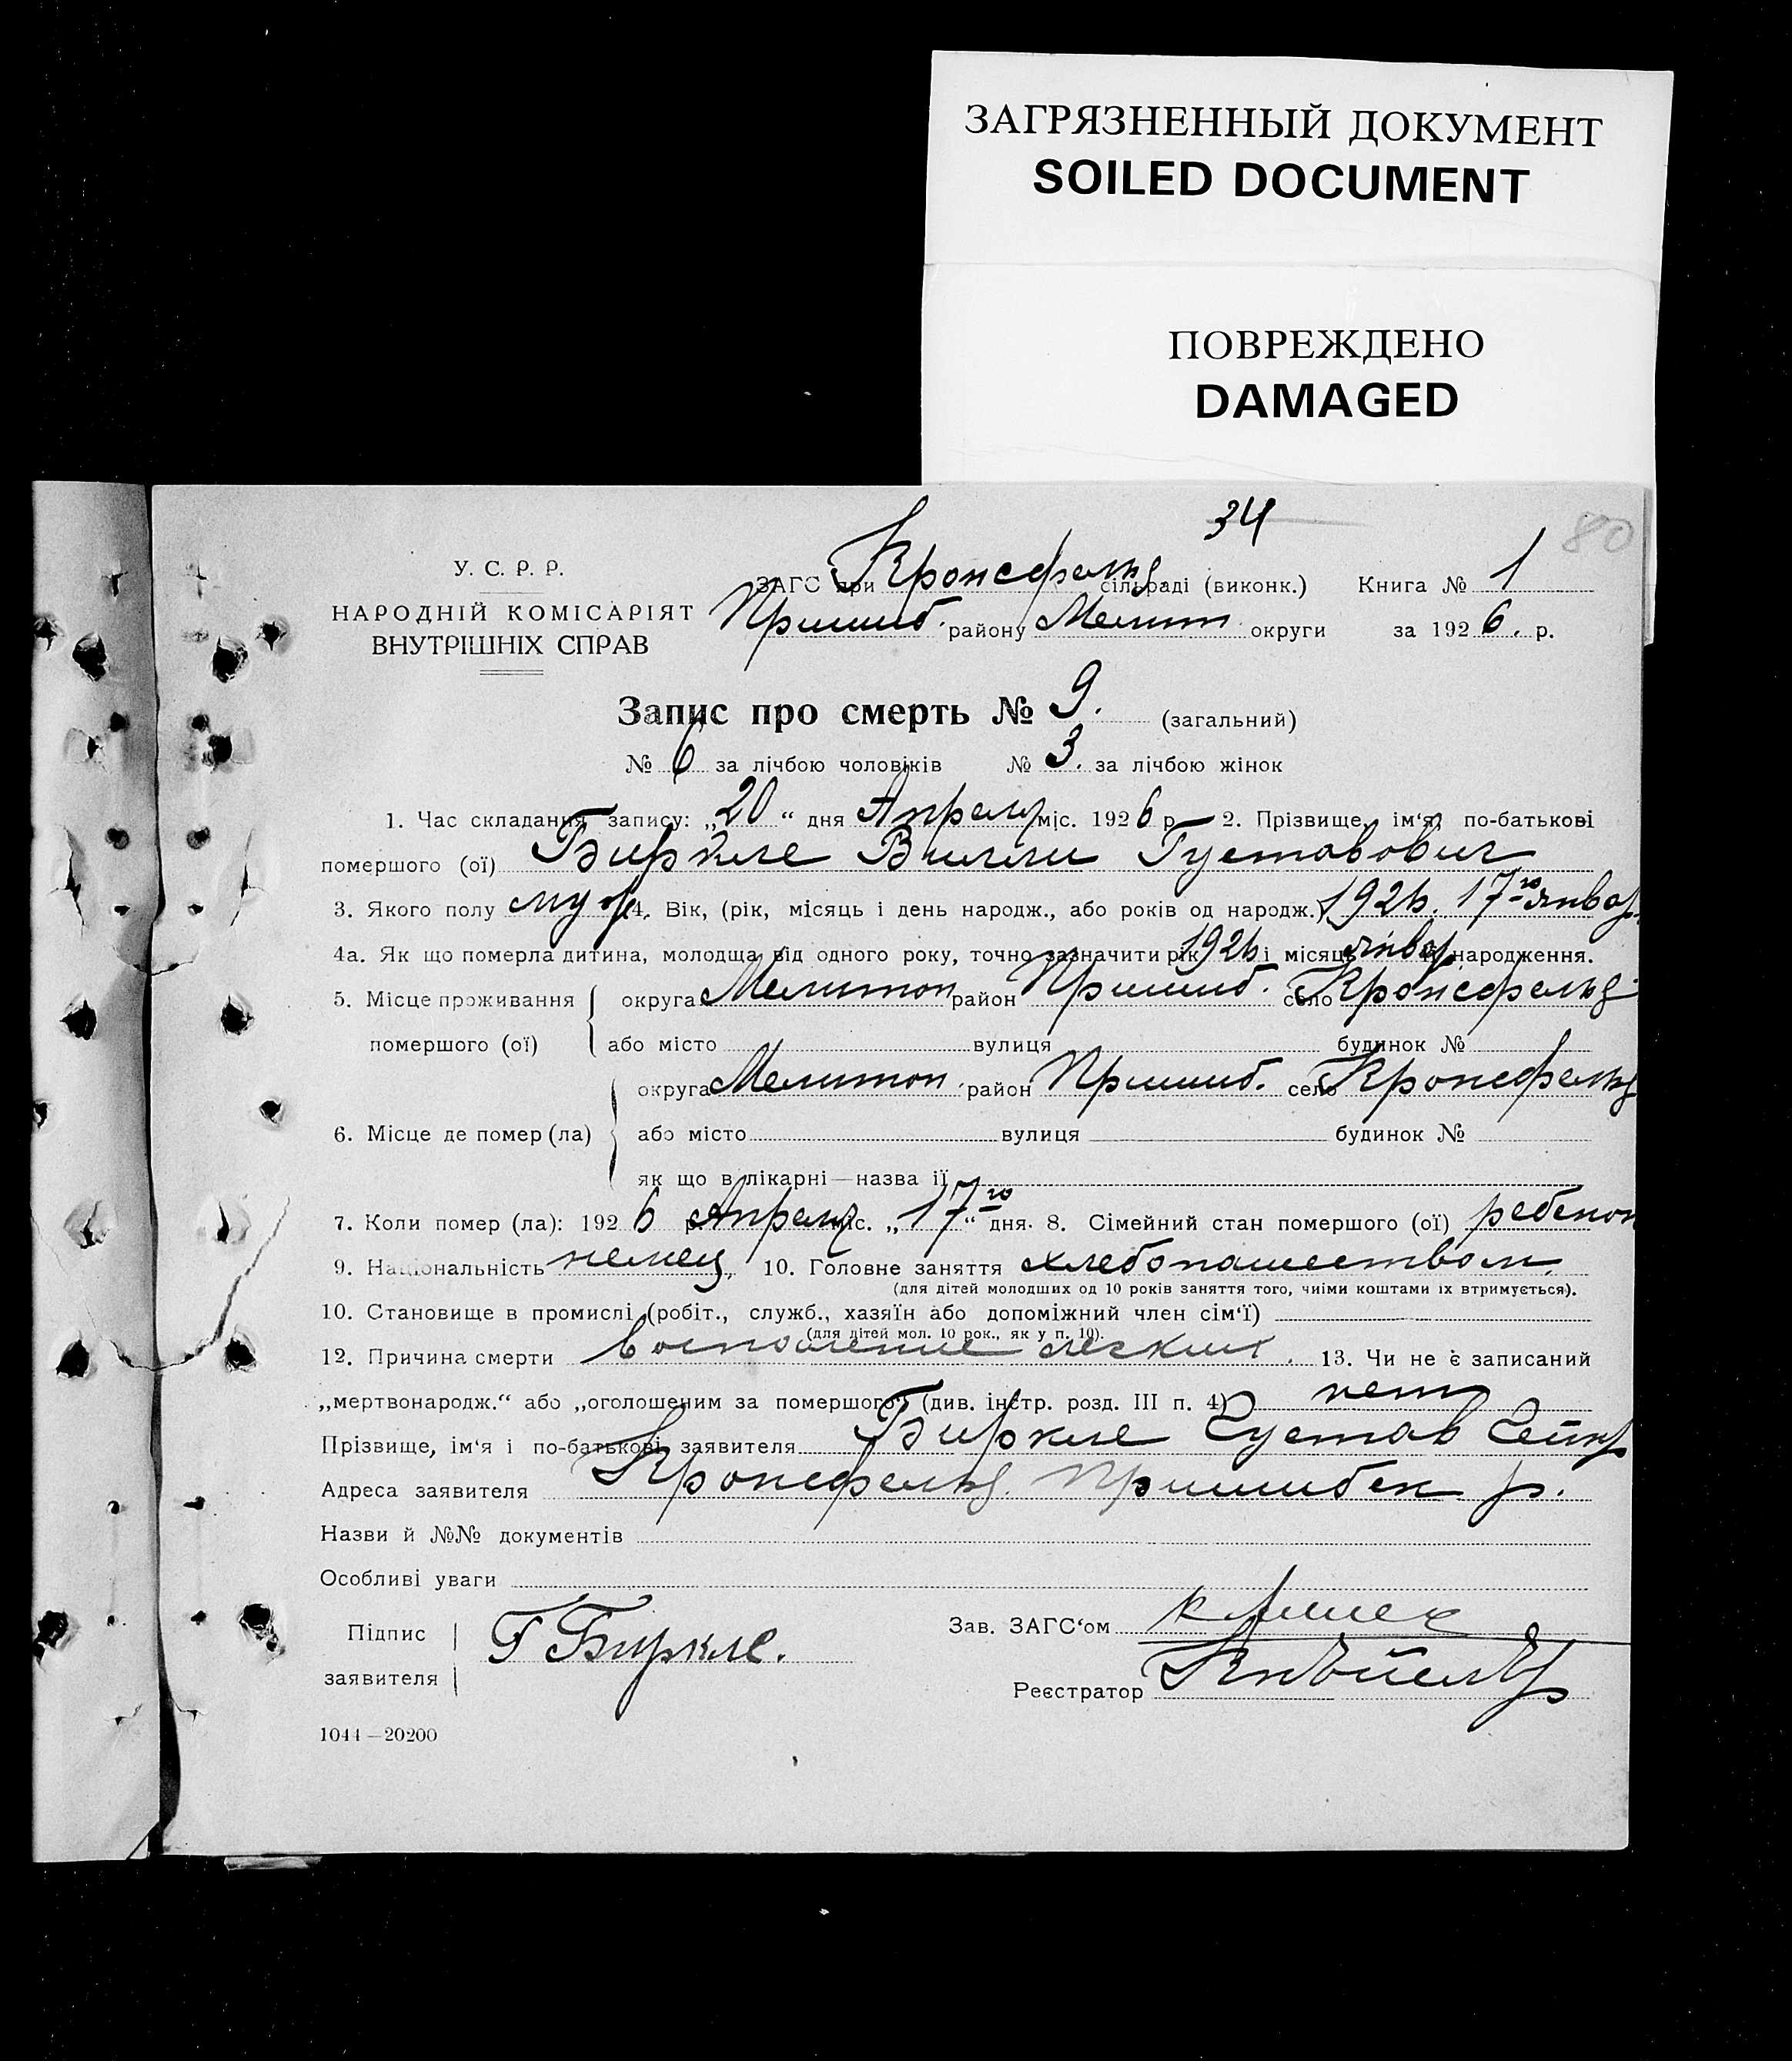 ЗАГРЯЗНЕННЫЙ ДОКУМЕНТ
SOILED DOCUMENT
ПОВРЕЖДЕНО
DAMAGED
34
80
У. С. Р. Р.
НАРОДНІЙ КОМІСАРІЯТ
ВНУТРІШНІХ СПРАВ
ЗАГС при Кронсфельд. сільраді (виконк.) Книга № 1
Пришиб. району Мелит. округи за 1926. р.
Запис про смерть № 9. (загальний)
№ 6 за лічбою чоловіків № 3. за лічбою жінок
1. Час складання запису: „20“ дня Апреля міс. 1926 р. 2. Прізвище, ім‘я, по-батькові
помершого (ої) Биркле Вилли Густавович
3. Якого полу муж. 4. Вік, (рік, місяць і день народж., або років од народж.) 1926. 17го январ.
4а. Як що померла дитина, молодща від одного року, точно зазначити рік 1926 і місяць январ. її народження.
5. Місце проживання округа Мелитоп район Пришиб. село Кронсфельд
помершого (ої) або місто вулиця будинок №
округа Мелитоп. район Пришиб. село Кронсфельд
6. Місце де помер (ла) або місто вулиця будинок №
як що в лікарні—назва її
7. Коли помер (ла): 1926 р. Апреля міс. „17го“ дня. 8. Сімейний стан помершого (ої) ребенок
9. Національність немец, 10. Головне заняття хлебопашеством.
(для дітей молодших од 10 років заняття того, чиїми коштами їх втримується).
10. Становище в промислі (робіт., служб., хазяїн або допоміжний член сім‘ї)
(для дітей мол. 10 рок., як у п. 10).
12. Причина смерти воспаление легких. 13. Чи не є записаний
„мертвонародж.“ або „оголошеним за помершого“ (див. інстр. розд. III п. 4) нет
Прізвище, ім‘я і по-батькові заявителя Биркле Густав
Адреса заявителя Кронсфельд. Пришибск р.
Назви й №№ документів
Особливі уваги
Підпис Г Биркле. Зав. ЗАГС‘ом
заявителя
Реєстратор
1044—20200